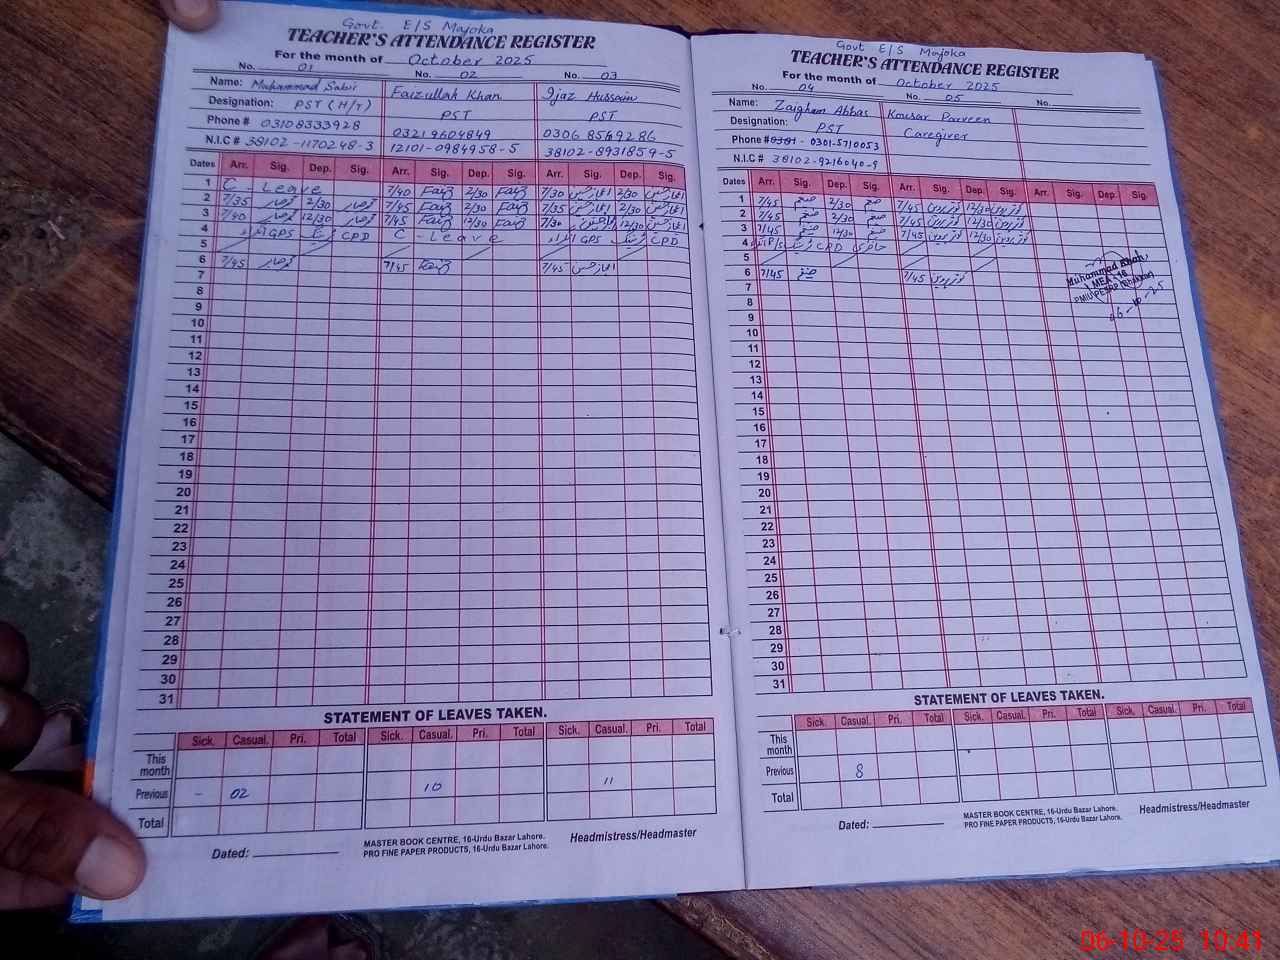 Govt. E/S Majoka
TEACHER'S ATTENDANCE REGISTER
For the month of October 2025
No. 01 No. 02 No. 03
Name: Muhammad Sabir Faizullah Khan Ijaz Hussain
Designation: PST (H/T) PST PST
Phone # 03108333928 03219604849 0306 8549286
N.I.C # 38102-1170248-3 12101-0984958-5 38102-8931859-5
Dates Arr. Sig. Dep. Sig. Arr. Sig. Dep. Sig. Arr. Sig. Dep. Sig.
1 C - Leave 7/40 Faiz 2/30 Faiz 7/30 2/30
2 7/35 2/30 7/45 Faiz 2/30 Faiz 7/35 2/30
3 7/40 12/30 7/45 Faiz 12/30 Faiz 7/30 12/30
4 GPS CPD C - Leave GPS CPD
5
6 7/45 7/45 Faiz 7/45
7
8
9
10
11
12
13
14
15
16
17
18
19
20
21
22
23
24
25
26
27
28
29
30
31
STATEMENT OF LEAVES TAKEN.
Sick. Casual. Pri. Total Sick. Casual. Pri. Total Sick. Casual. Pri. Total
This month
Previous - 02 10 11
Total
Dated:
MASTER BOOK CENTRE, 16-Urdu Bazar Lahore.
PRO FINE PAPER PRODUCTS, 16-Urdu Bazar Lahore.
Headmistress/Headmaster
Govt E/S Majoka
TEACHER'S ATTENDANCE REGISTER
For the month of October 2025
No. 04 No. 05 No.
Name: Zaigham Abbas Kousar Parveen
Designation: PST Caregiver
Phone # 0301-5710053
N.I.C # 38102-9216040-9
Dates Arr. Sig. Dep. Sig. Arr. Sig. Dep. Sig. Arr. Sig. Dep. Sig.
1 7/45 2/30 7/45 12/30
2 7/45 2/30 7/45 12/30
3 7/45 12/30 7/45 12/30
4 CPD
5
6 7/45 7/45
7
8
9
10
11
12
13
14
15
16
17
18
19
20
21
22
23
24
25
26
27
28
29
30
31
Muhammad Khan
MEA-16
06-10-25
STATEMENT OF LEAVES TAKEN.
Sick. Casual. Pri. Total Sick. Casual. Pri. Total Sick. Casual. Pri. Total
This month
Previous 8
Total
Dated:
MASTER BOOK CENTRE, 16-Urdu Bazar Lahore.
PRO FINE PAPER PRODUCTS, 16-Urdu Bazar Lahore.
Headmistress/Headmaster
06-10-25 10:41